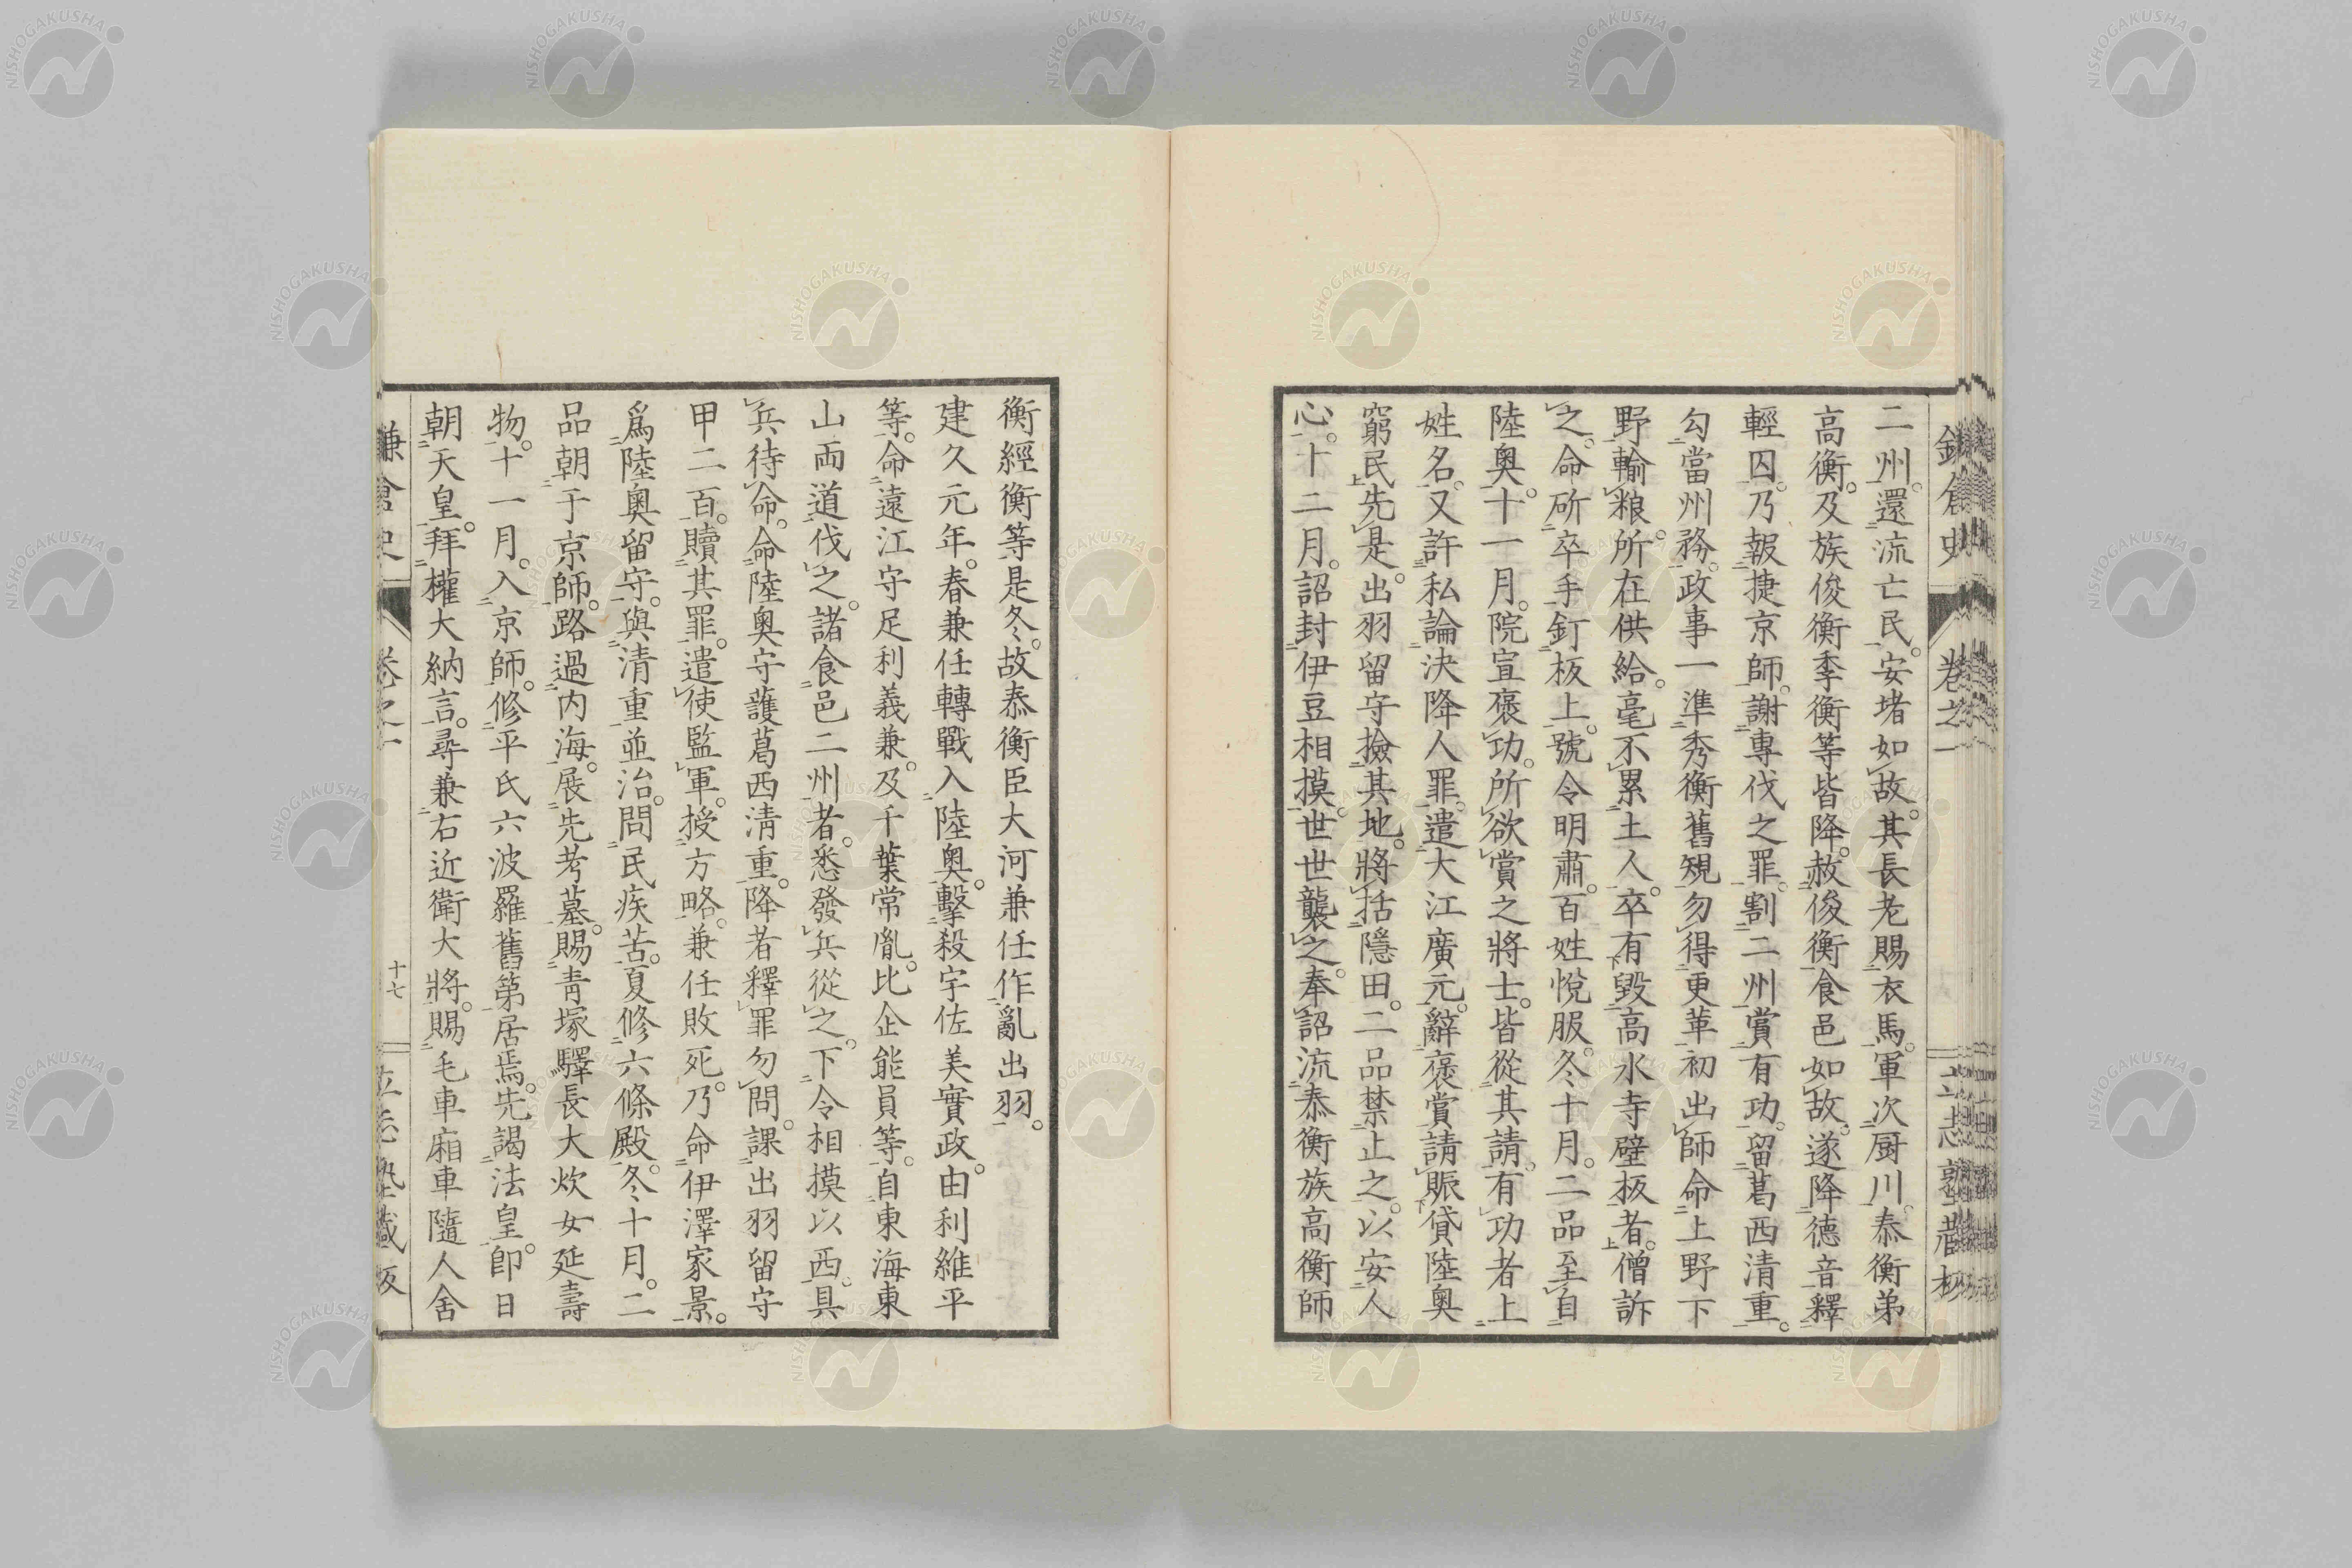 鎌倉史 卷之一 立志塾藏板
二州。還流亡民。安堵如故。其長老賜衣馬。軍次厨川。泰衡弟
高衡。及族俊衡季衡等皆降。赦俊衡食邑如故。遂降德音釋
輕囚。乃報捷京師。謝專伐之罪。割二州賞有功。留葛西清重。
勾當州務。政事一準秀衡舊規勿得更革初出師命上野下
野輸粮。所在供給。毫不累土人。卒有毀高水寺壁板者。僧訴
之。命斫卒手釘板上。號令明肅。百姓悅服。冬十月。二品至自
陸奥。十一月。院宣褒功。所欲賞之將士。皆從其請。有功者上
姓名。又許私論決降人罪。遣大江廣元。辭褒賞請賑貸陸奥
窮民先是。出羽留守撿其地。將括隱田。二品禁止之。以安人
心。十二月。詔封伊豆相摸。世世襲之。奉詔流泰衡族高衡師
衡經衡等是冬。故泰衡臣大河兼任作亂出羽。
建久元年。春兼任轉戰入陸奥。擊殺宇佐美實政。由利維平
等。命遠江守足利義兼。及千葉常胤。比企能員等。自東海東
山両道伐之。諸食邑二州者。悉發兵從之。下令相摸以西。具
兵待命。命陸奥守護葛西清重。降者釋罪勿問。課出羽留守
甲二百。贖其罪。遣使監軍。授方略。兼任敗死。乃命伊澤家景。
爲陸奥留守。與清重並治。問民疾苦。夏修六條殿。冬十月。二
品朝于京師。路過内海。展先考墓。賜青塚驛長大炊女延壽
物。十一月。入京師。修平氏六波羅舊第居焉。先謁法皇。即日
朝天皇。拜權大納言。尋兼右近衛大將。賜毛車廂車隨人舍
鎌倉史 卷之一 十七 立志塾藏板